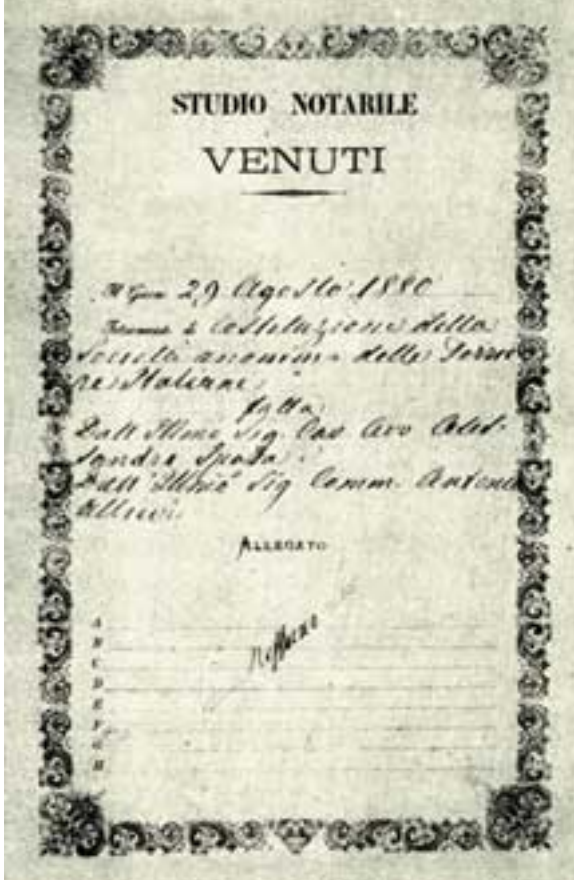 STUDIO NOTARILE
VENUTI
29 Agosto 1880
Costituzione della
Società anonima delle Ferrie
re Italiane
fatta
Dall'Illmo Sig. Cav Avv Ales
sandro Spada
Dall'Illmo Sig Comm. Antonio
Allievi
ALLEGATO
A
B
C
D
E
F
G
H